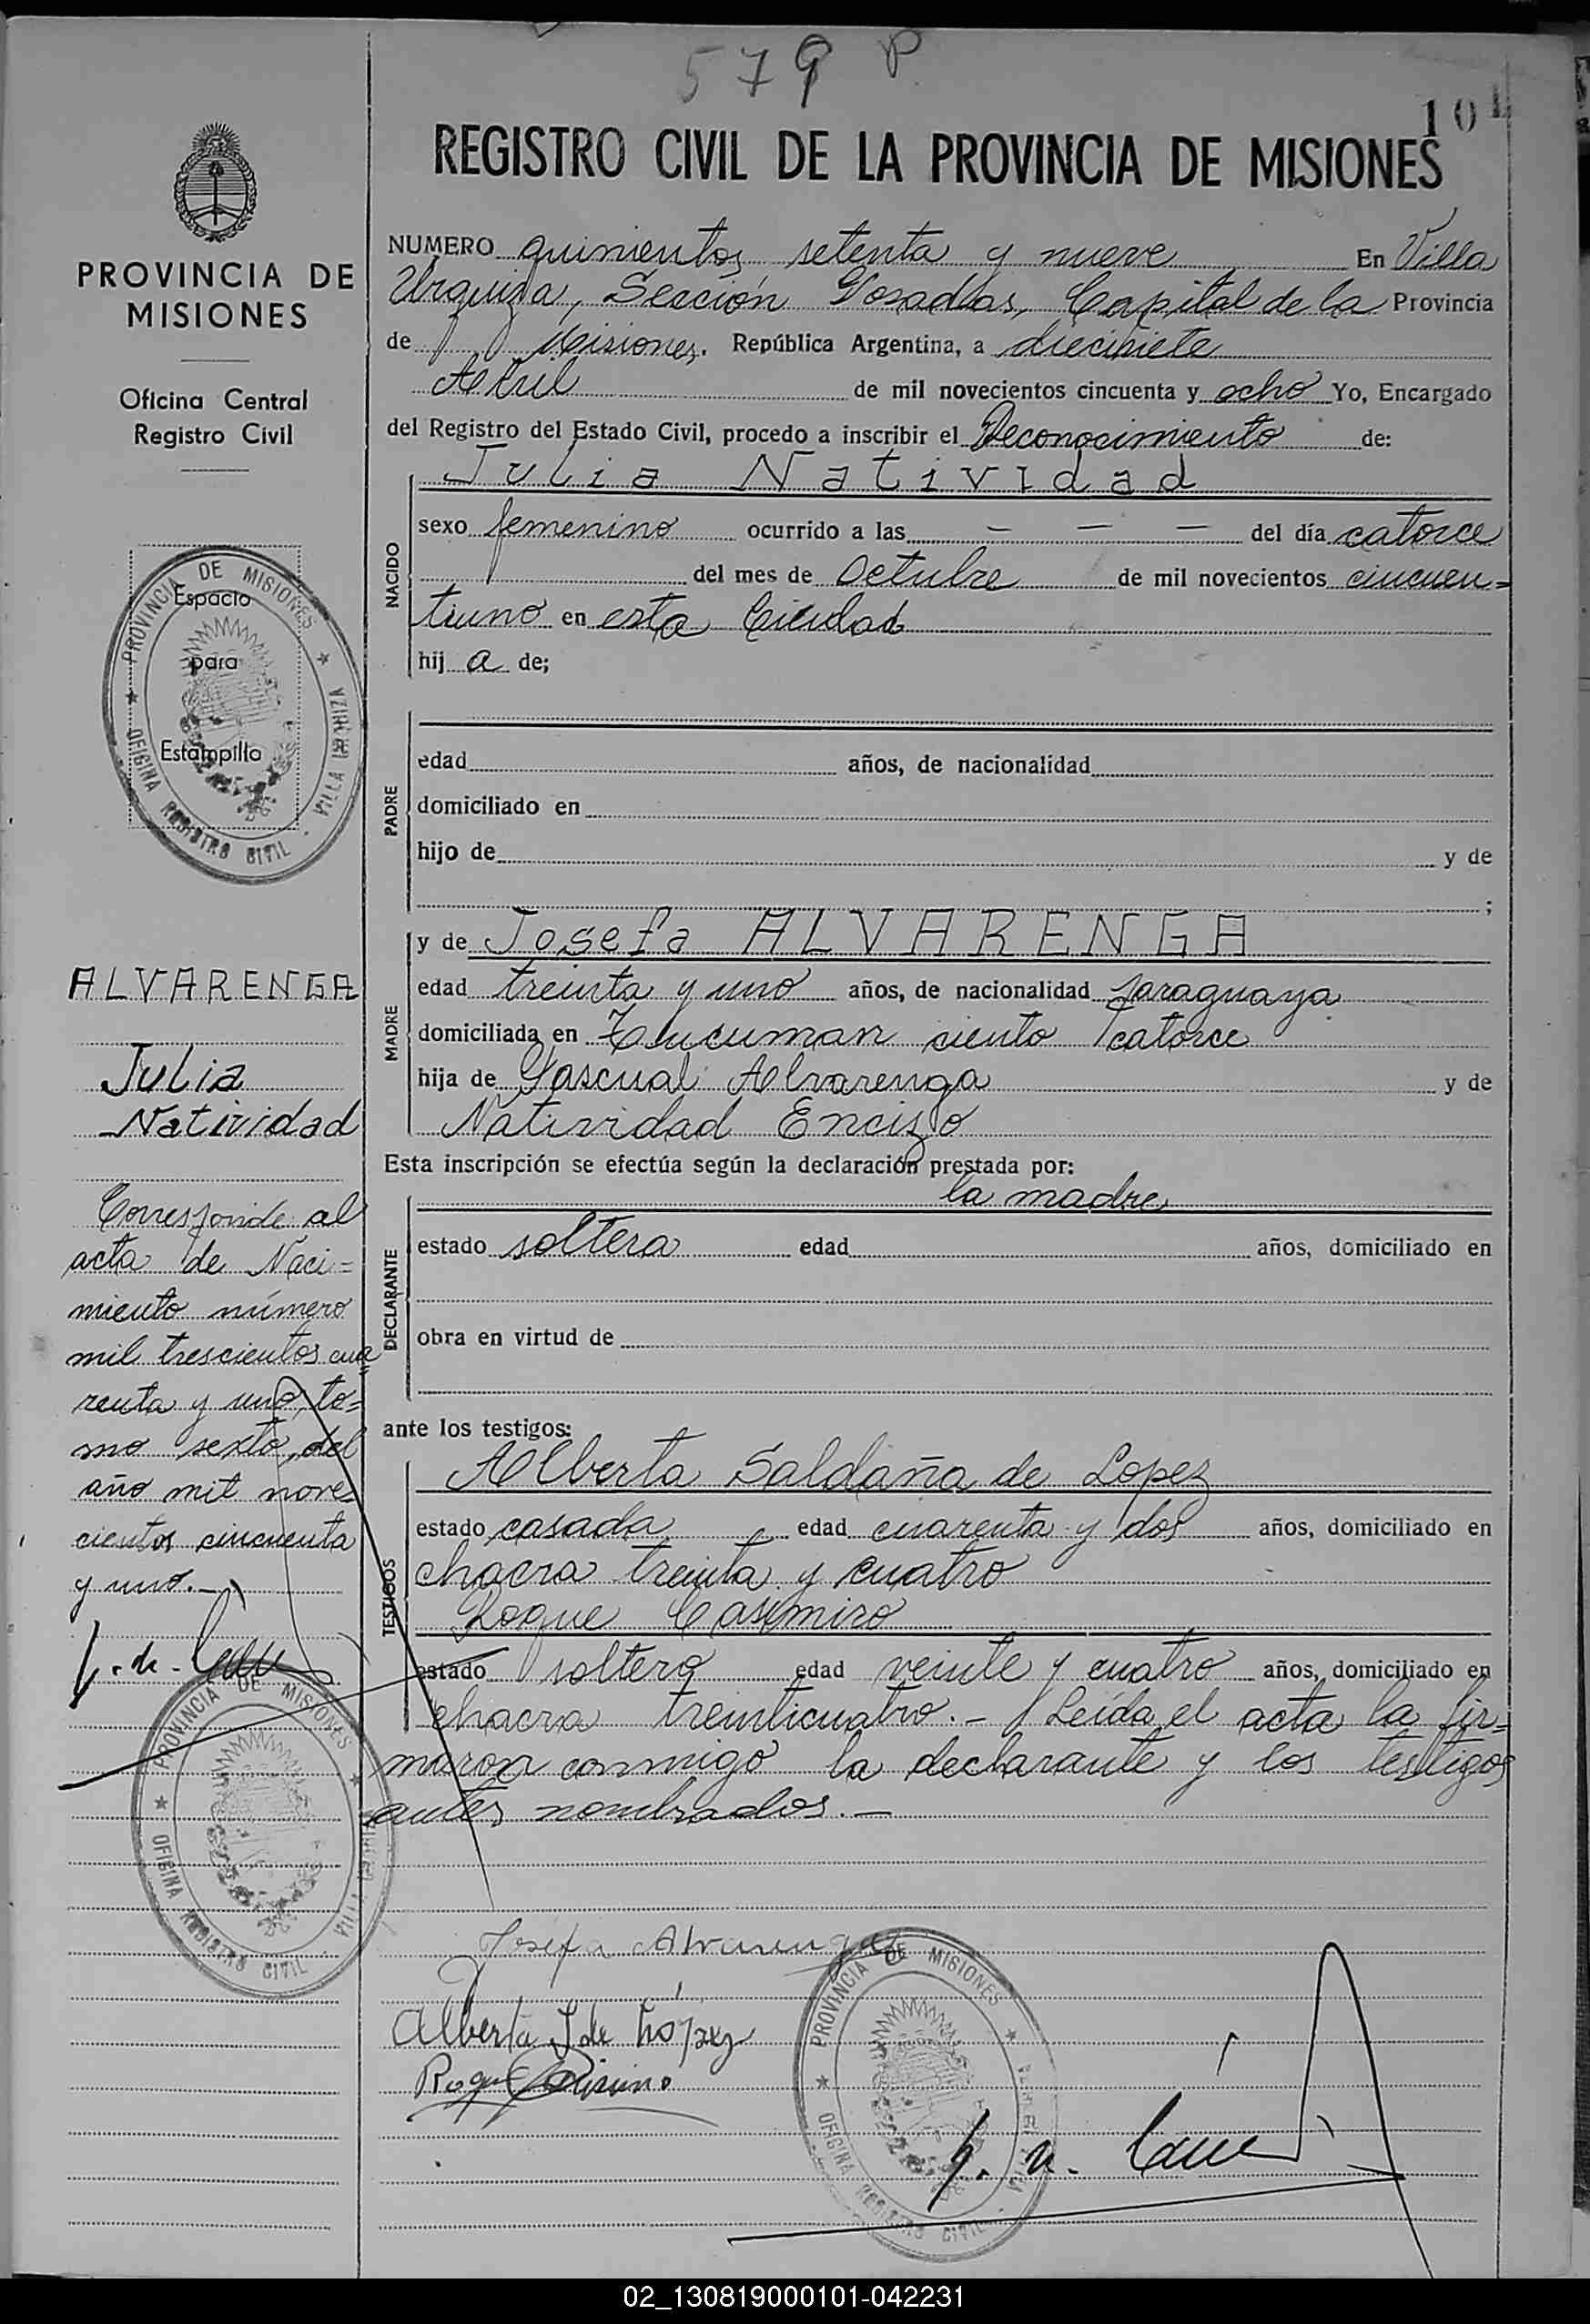 579 P
101
REGISTRO CIVIL DE LA PROVINCIA DE MISIONES
PROVINCIA DE
MISIONES
Oficina Central
Registro Civil
Espacio
para
Estampilla
PROVINCIA DE MISIONES
OFICINA REGISTRO CIVIL VILLA URQUIZA
ALVARENGA
Julia
Natividad
Corresponde al
acta de Naci=
miento número
mil trescientos cua=
renta y uno, to=
mo sexto, del
año mil nove
cientos cincuenta
y uno.-
PROVINCIA DE MISIONES
OFICINA REGISTRO CIVIL VILLA
NUMERO quinientos setenta y nueve En Villa
Urquiza, Sección Posadas, Capital de la Provincia
de Misiones. República Argentina, a diecisiete
Abril de mil novecientos cincuenta y ocho Yo, Encargado
del Registro del Estado Civil, procedo a inscribir el Reconocimiento de:
Julia Natividad
NACIDO
sexo femenino ocurrido a las — — — del día catorce
del mes de Octubre de mil novecientos cincuen=
tiuno en esta Ciudad
hij a de;
PADRE
edad años, de nacionalidad
domiciliado en
hijo de y de
;
MADRE
y de Josefa ALVARENGA
edad treinta y uno años, de nacionalidad paraguaya
domiciliada en Tucuman ciento catorce
hija de Pascual Alvarenga y de
Natividad Encizo
Esta inscripción se efectúa según la declaración prestada por:
la madre
DECLARANTE
estado soltera edad años, domiciliado en
obra en virtud de
ante los testigos:
Alberta Saldaña de Lopez
TESTIGOS
estado casada edad cuarenta y dos años, domiciliado en
chacra treinta y cuatro
Roque Casimiro
estado soltero edad veinte y cuatro años, domiciliado en
chacra treinticuatro.- Leída el acta la fir=
maron conmigo la declarante y los testigos
antes nombrados.—
Josefa Alvarenga
Alberta S de López
Roque Casimiro
PROVINCIA DE MISIONES
OFICINA REGISTRO CIVIL VILLA
02_130819000101-042231